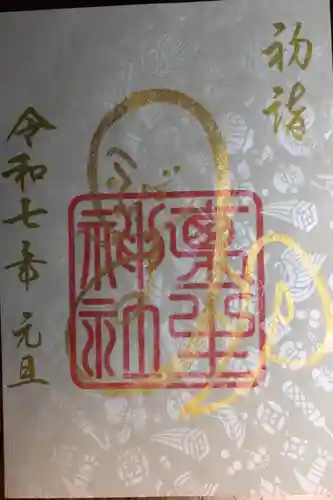 初詣
神社
令和七年元旦